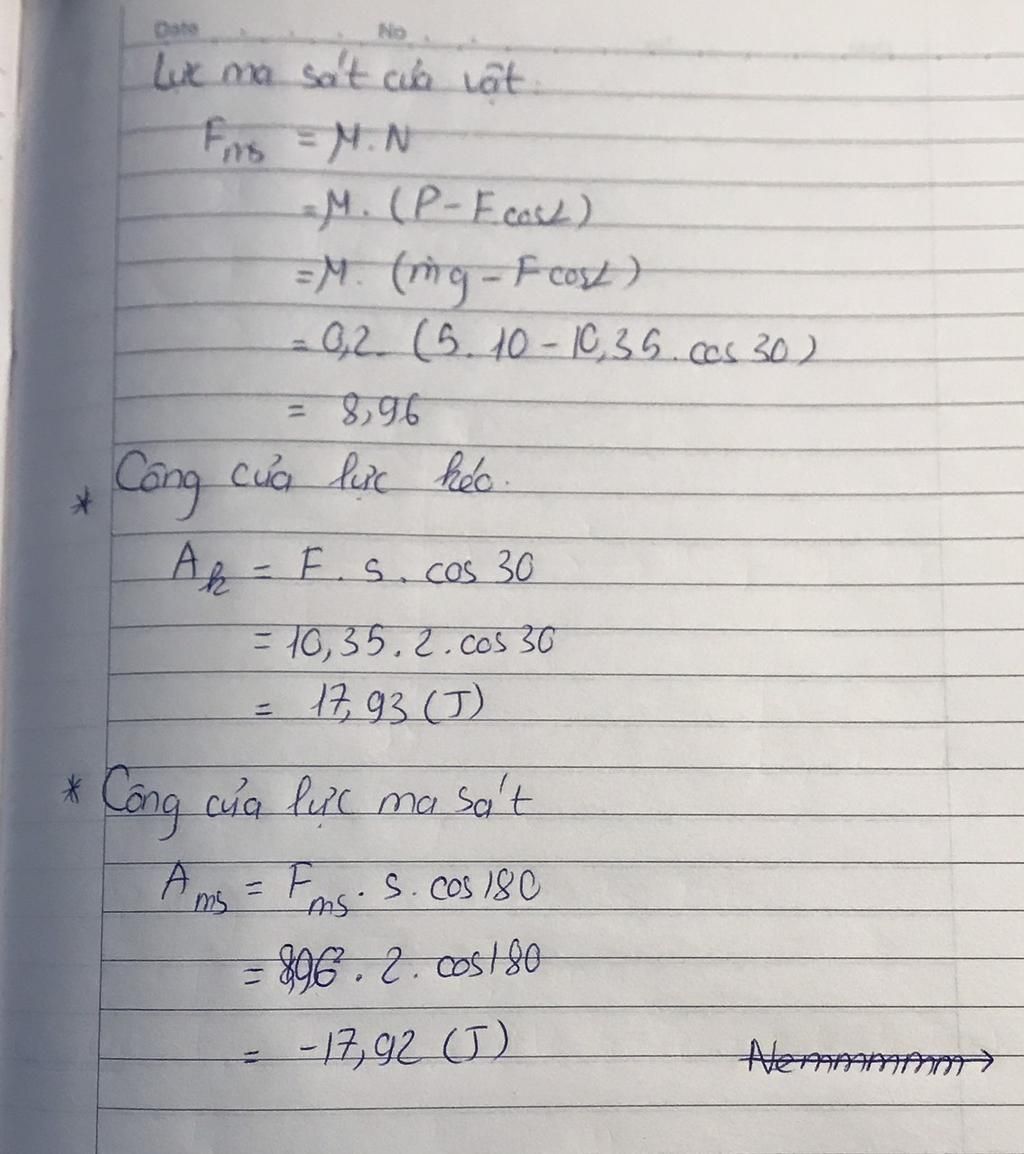 Date No
Lực ma sát của vật.
Fms = μ.N
= μ. (P - Fcosα)
= μ. (mg - Fcosα)
= 0,2. (5. 10 - 10,35. cos 30)
= 8,96
* Công của lực kéo.
Ak = F. s. cos 30
= 10,35. 2. cos 30
= 17,93 (J)
* Công của lực ma sát
Ams = Fms. s. cos180
= 8,96. 2. cos180
= -17,92 (J)